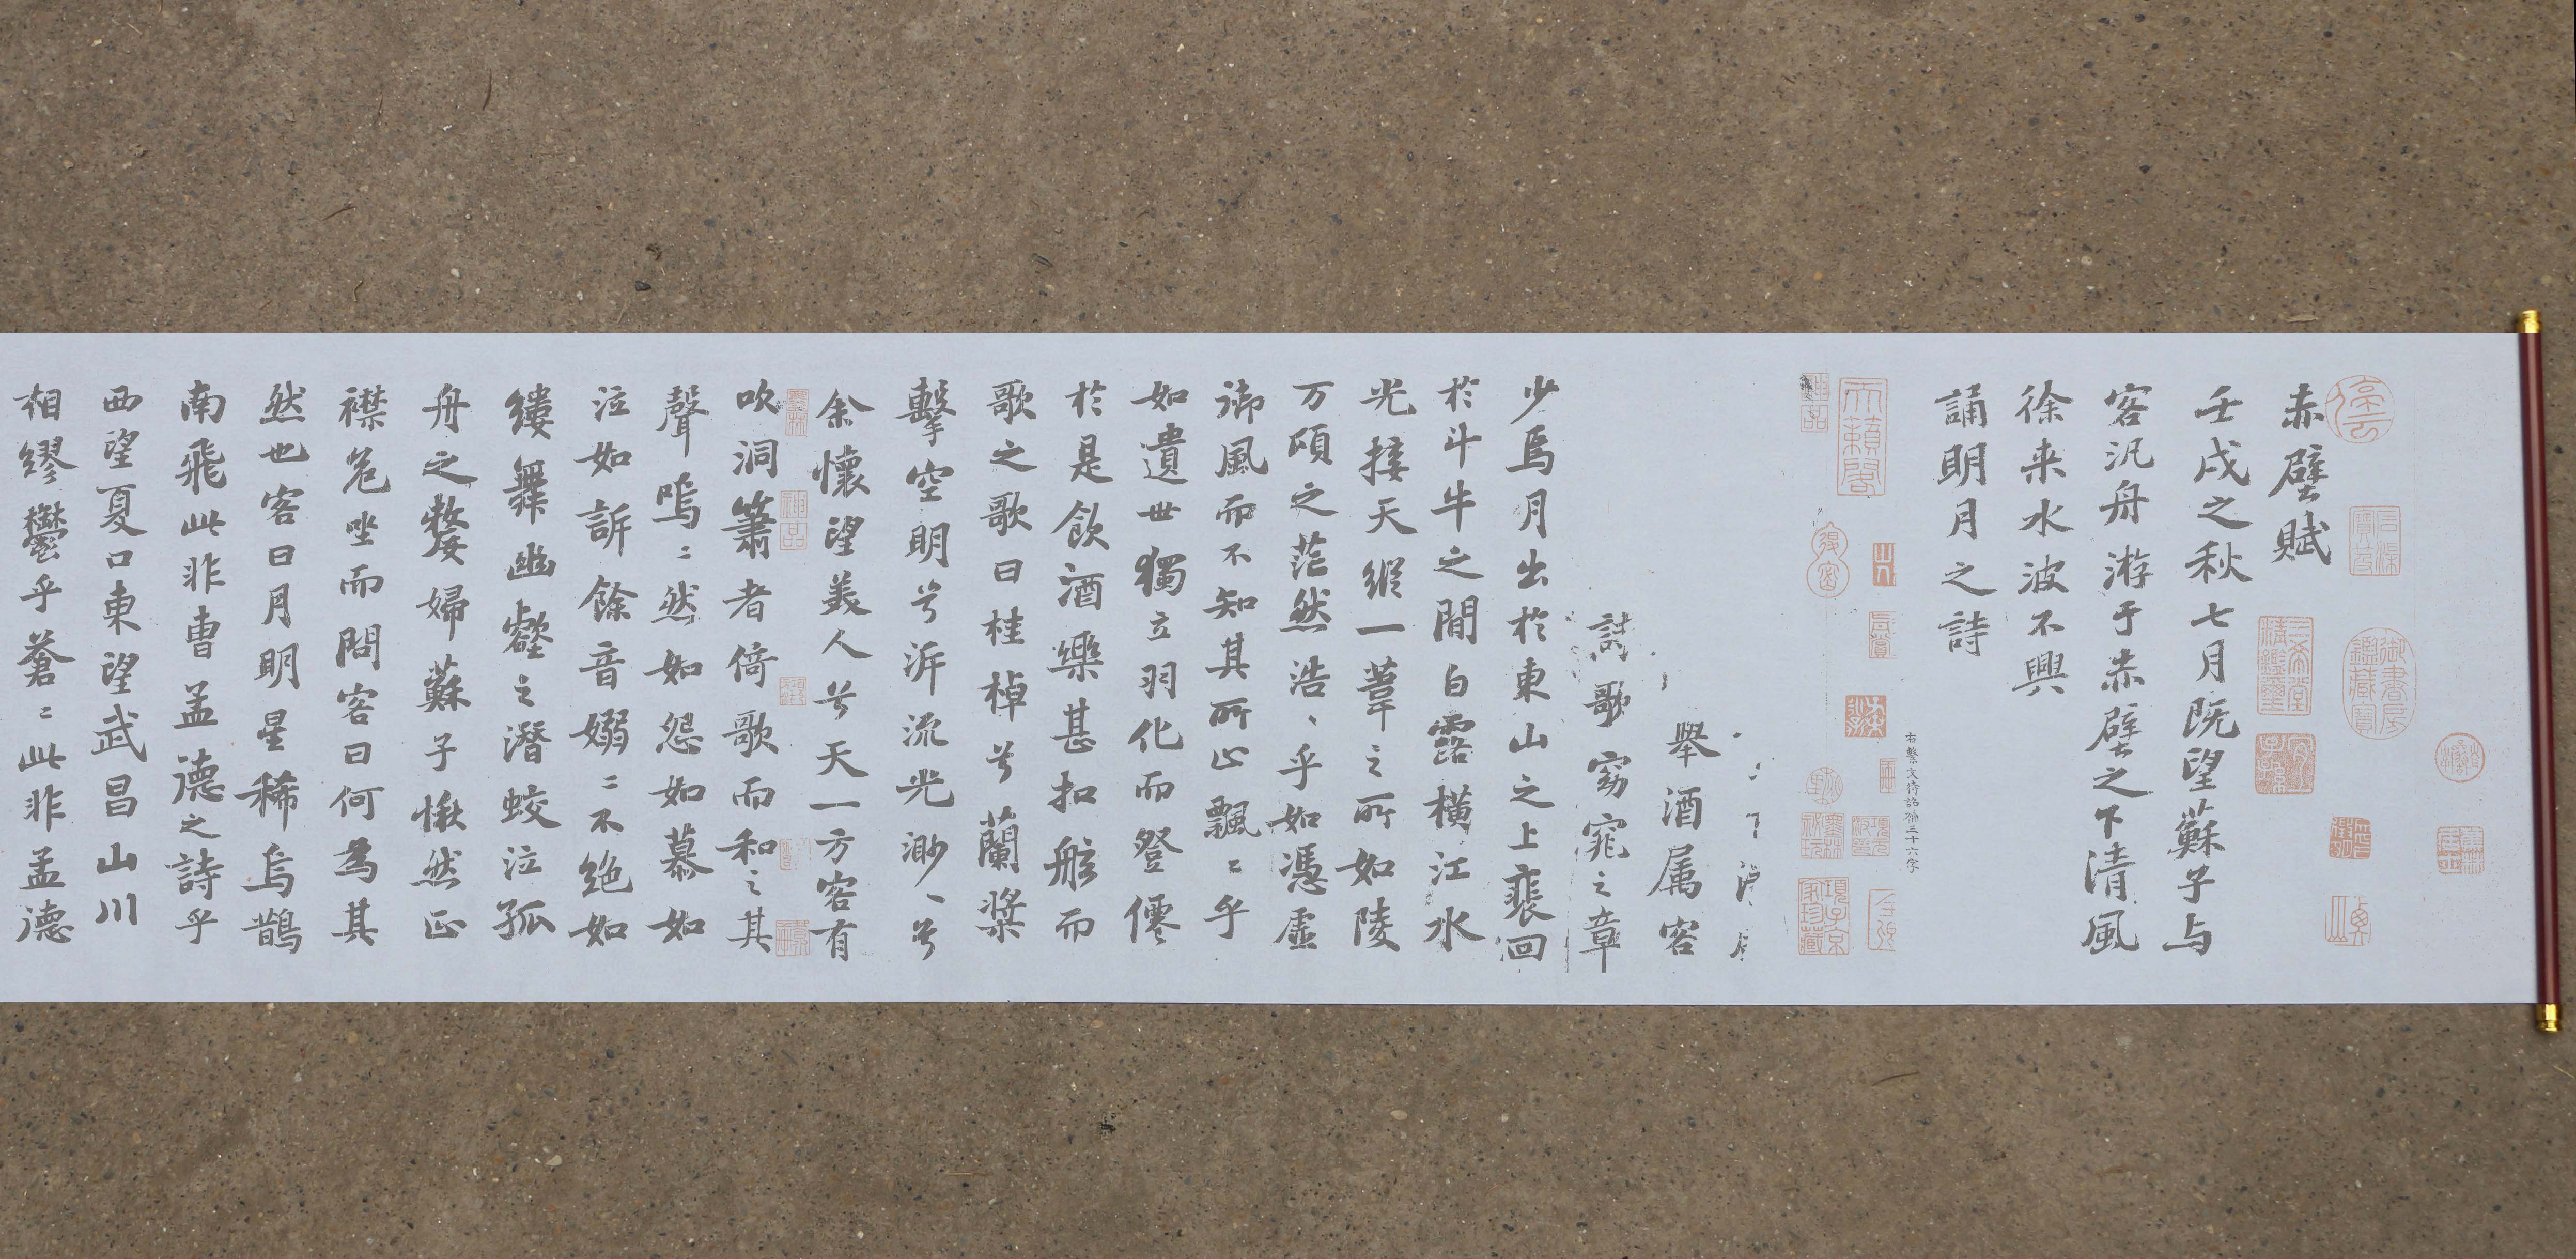 赤壁賦
壬戌之秋七月既望蘇子与
客汎舟游于赤壁之下清風
徐来水波不興
誦明月之詩
右繫文待詔補三十六字
天籟閣
神品
舉酒属客
詩歌窈窕之章
少焉月出於東山之上裴回
於斗牛之間白露橫江水
光接天縱一葦之所如陵
万頃之茫然浩、乎如馮虛
御風而不知其所止飄〻乎
如遺世獨立羽化而登僊
於是飲酒樂甚扣舷而
歌之歌曰桂棹兮蘭槳
擊空明兮泝流光渺、兮
余懷望美人兮天一方客有
神品
吹洞簫者倚歌而和之其
聲嗚〻然如怨如慕如
泣如訴餘音嫋〻不絕如
縷舞幽壑之潛蛟泣孤
舟之嫠婦蘇子愀然正
襟危坐而問客曰何為其
然也客曰月明星稀烏鵲
南飛此非曹孟德之詩乎
西望夏口東望武昌山川
相繆鬱乎蒼〻此非孟德